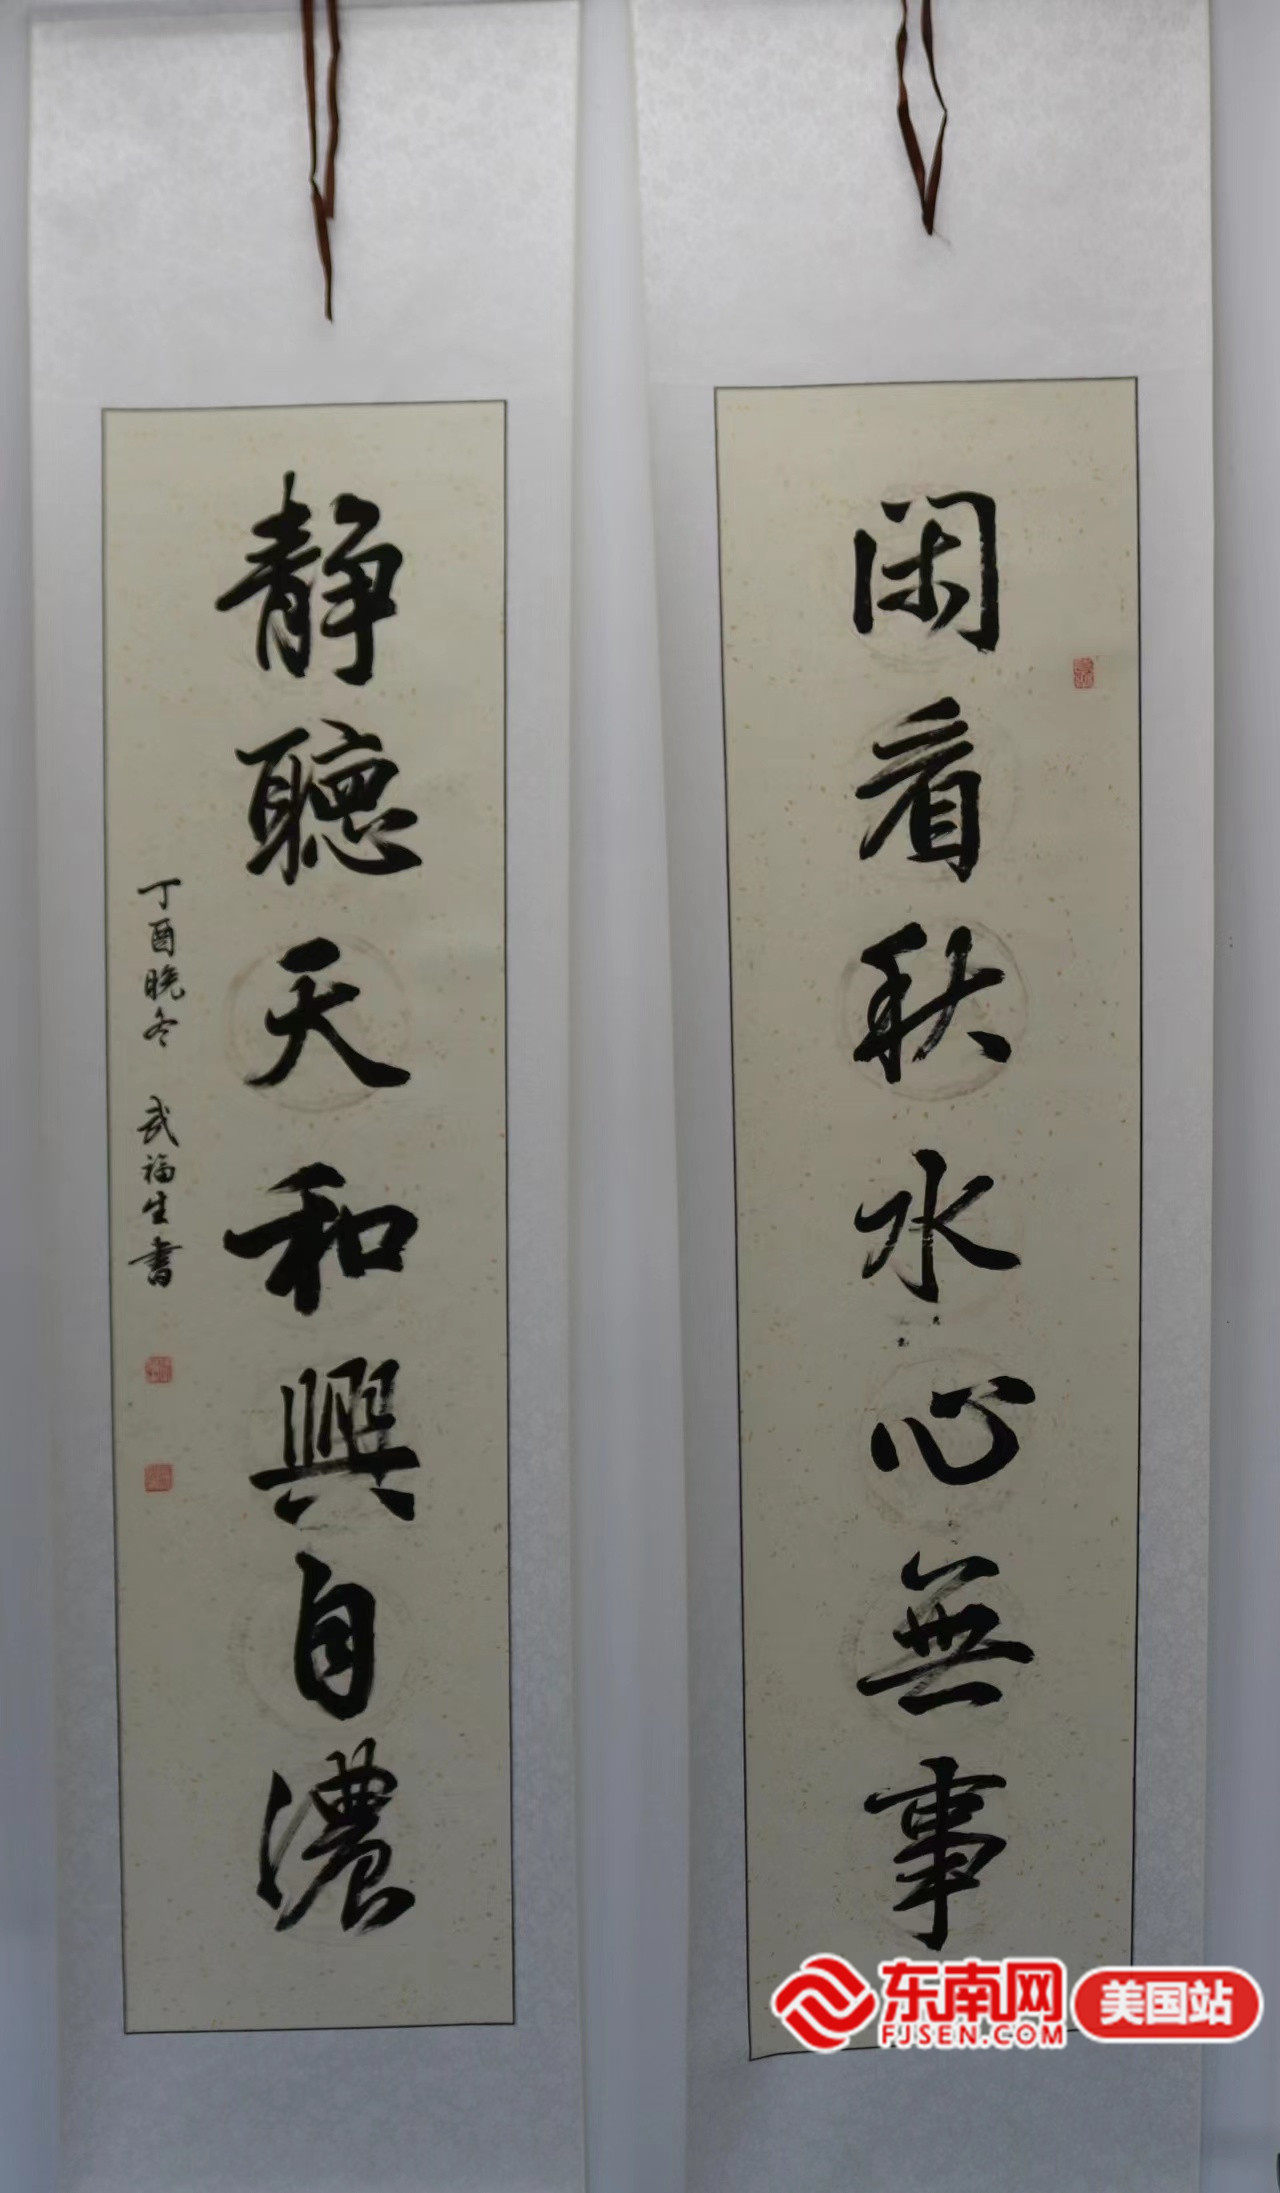 閑看秋水心無事
靜聽天和興自濃
丁酉晚冬 武福生書
东南网
FJSEN.COM
美国站